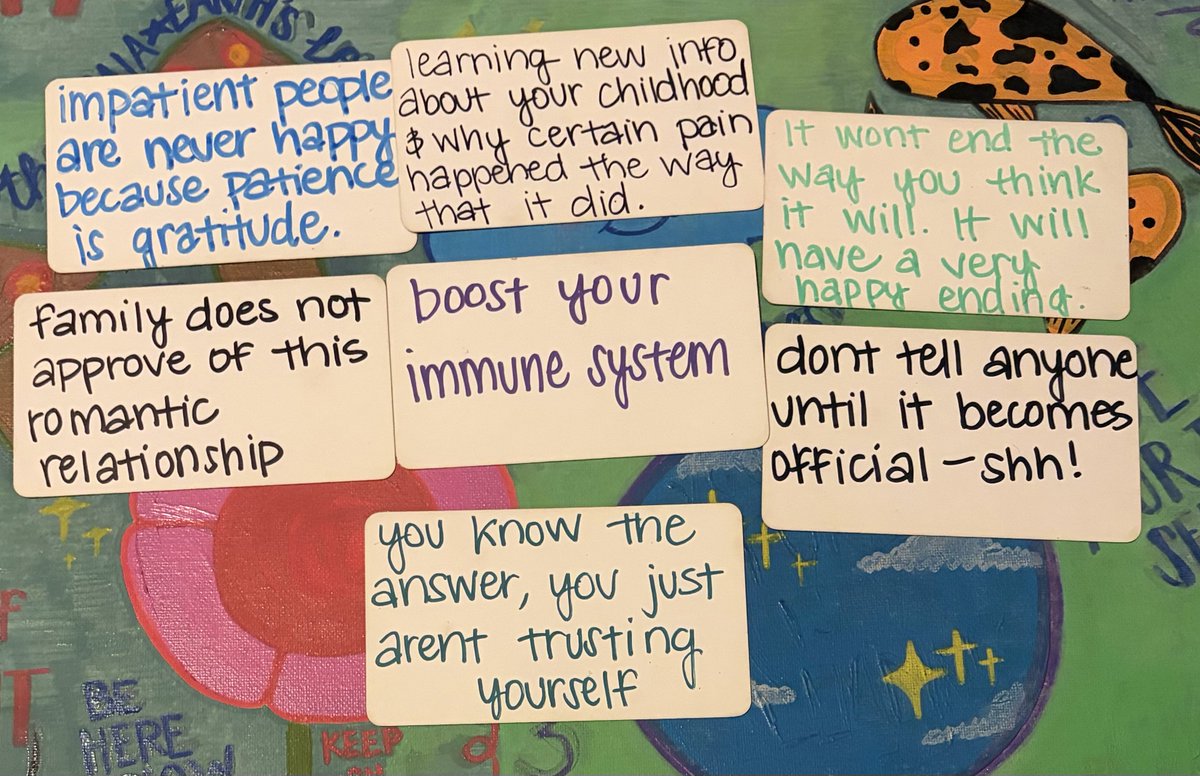 impatient people
are never happy
because patience
is gratitude.
learning new info
about your childhood
& why certain pain
happened the way
that it did.
It wont end the
way you think
it will. It will
have a very
happy ending.
family does not
approve of this
romantic
relationship
boost your
immune system
dont tell anyone
until it becomes
official - shh!
you know the
answer, you just
arent trusting
yourself
BE
HERE
KEEP